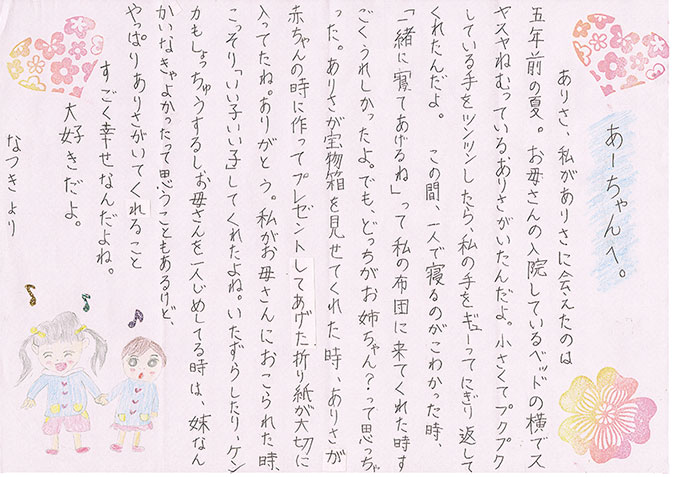 あーちゃんへ。
ありさ、私がありさに会えたのは
五年前の夏。お母さんの入院しているベッドの横でス
ヤスヤねむっているありさがいたんだよ。小さくてプクプク
している手をツンツンしたら、私の手をギューってにぎり返して
くれたんだよ。 この間、一人で寝るのがこわかった時、
「一緒に寝てあげるね」って私の布団に来てくれた時す
ごくうれしかったよ。でも、どっちがお姉ちゃん？って思っちゃ
った。ありさが宝物箱を見せてくれた時、ありさが
赤ちゃんの時に作ってプレゼントしてあげた折り紙が大切に
入ってたね。ありがとう。私がお母さんにおこられた時、
こっそり「いい子いい子」してくれたよね。いたずらしたり、ケン
カもしょっちゅうするし、お母さんを一人じめしてる時は、妹なん
かいなきゃよかったって思うこともあるけど、
やっぱりありさがいてくれること
すごく幸せなんだよね。
大好きだよ。
なつきより